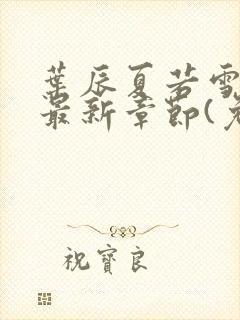 葉辰夏若雪
最新章節(
祝寶良